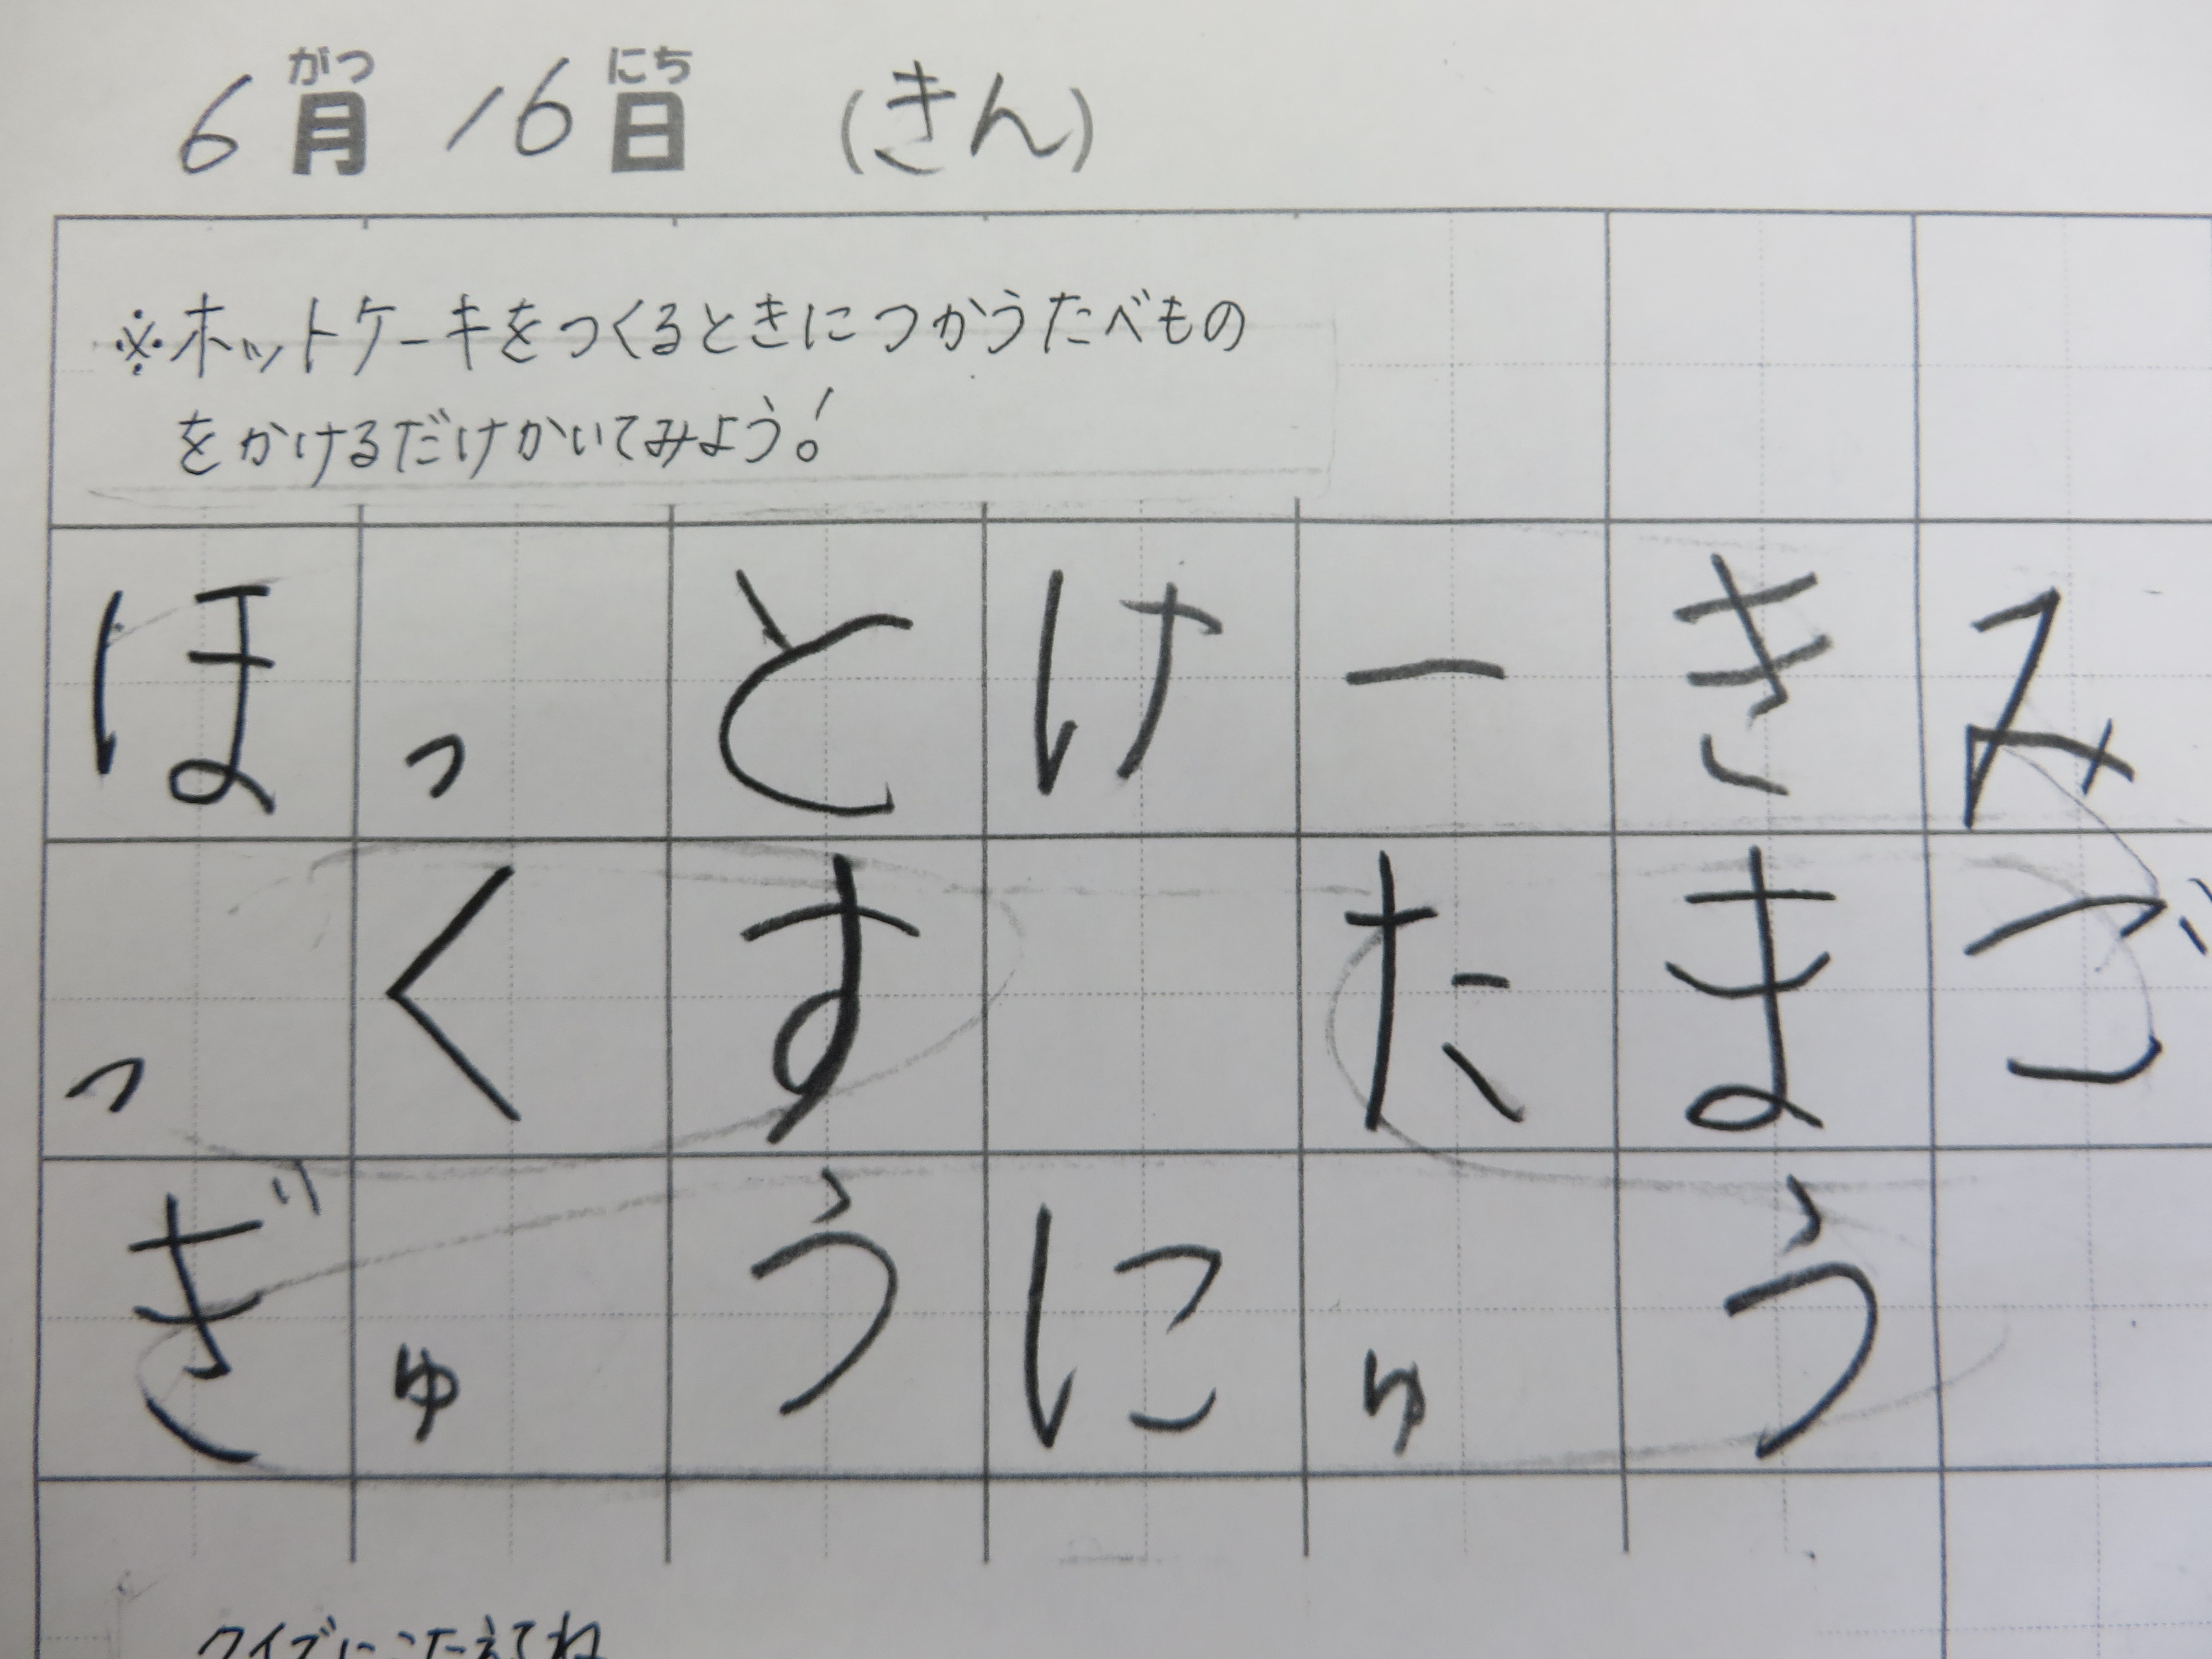 がつ にち
6月16日 (きん)
※ホットケーキをつくるときにつかうたべもの
をかけるだけかいてみよう!
ほっとけーきみ
っくす たまご
ぎゅうにゅう
クイズにこたえてね